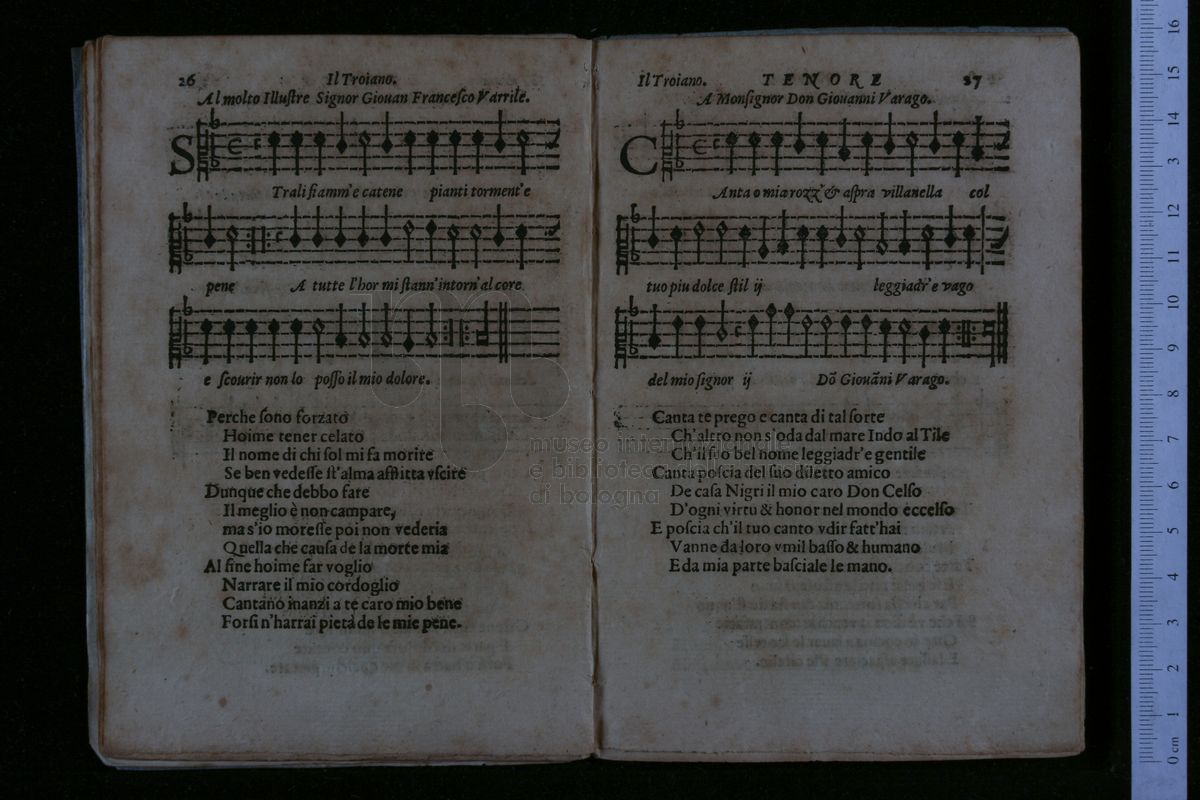 26 Il Troiano.
Al molto Illustre Signor Giouan Francesco Varrile.
S
Trali fiamm'e catene pianti torment'e
pene A tutte l'hor mi stann'intorn'al core
e scourir non lo posso il mio dolore.
Perche sono forzato
Hoime tener celato
Il nome di chi sol mi fa morire
Se ben vedesse st'alma afflitta vscire
Dunque che debbo fare
Il meglio è non campare,
ma s'io moresse poi non vederia
Quella che causa de la morte mia
Al fine hoime far voglio
Narrare il mio cordoglio
Cantano inanzi a te caro mio bene
Forsi n'harrai pietà de le mie pene.
Il Troiano. TENORE 27
A Monsignor Don Giouanni Varago.
C
Anta o mia rozz'& aspra villanella col
tuo piu dolce stil ij leggiadr'e vago
del mio signor ij Dõ Giouãni Varago.
Canta te prego e canta di tal sorte
Ch'altro non s'oda dal mare Indo al Tile
Ch'il suo bel nome leggiadr'e gentile
Canta poscia del suo diletto amico
De casa Nigri il mio caro Don Celso
D'ogni virtu & honor nel mondo eccelso
E poscia ch'il tuo canto vdir fatt'hai
Vanne da loro vmil basso & humano
E da mia parte basciale le mano.
museo internazionale
e biblioteca della musica
di bologna
16
15
14
13
12
11
10
9
8
7
6
5
4
3
2
1
0 cm